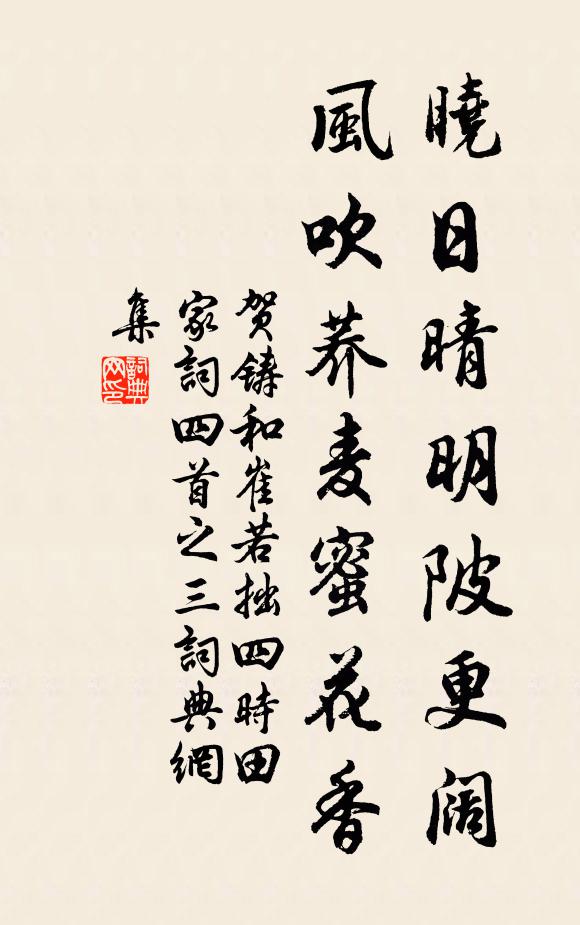 曉日晴明陂更阔
風吹荞麦蜜花香
贺鑄和崔若拙四時田
家詞四首之三詞典網
集
詞典
网印